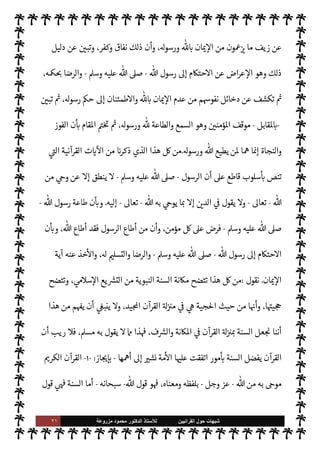 عن زيف ما يزعمون من الإيمان بالله ورسوله، وأن ذلك نفاق وكفر، وتبين عن دليل
ذلك وهو الإعراض عن الاحتكام إلى رسول الله - صلى الله عليه وسلم - والرضا بحكمه،
ثم تكشف عن دخائل نفوسهم من عدم الإيمان بالله والاطمئنان إلى حكم رسوله، ثم تبين
-بالمقابل - موقف المؤمنين وهو السمع والطاعة لله ورسوله، ثم تختتم المقام بأن الفوز
والنجاة إنما هما لمن يطيع الله ورسوله.من كل هذا الذي ذكرنا من الآيات القرآنية التي
تنص بأسلوب قاطع على أن الرسول - صلى الله عليه وسلم - لا ينطق إلا عن وحي من
الله - تعالى - ولا يقول في الدين إلا بما يوحي به الله - تعالى - إليه. وبأن طاعة رسول الله -
صلى الله عليه وسلم - فرض على كل مؤمن، وأن من أطاع الرسول فقد أطاع الله، وبأن
الاحتكام إلى رسول الله - صلى الله عليه وسلم - والرضا والتسليم له، والأخذ عنه آية
الإيمان. نقول :من كل هذا تتضح مكانة السنة النبوية من التشريع الإسلامي، وتتضح
حجيتها، وأنها من حيث الحجية هي في منزلة القرآن المجيد. ولا ينبغي أن يفهم من هذا
أننا نجعل السنة بمنزلة القرآن في المكانة والشرف، فهذا مما لا يقول به مسلم، فلا ريب أن
القرآن يفضل السنة بأمور اتفقت عليها الأمة نشير إلى أهمها - بإيجاز: ١٠- القرآن الكريم
موحى به من الله - عز وجل - بلفظه ومعناه، فهو قول الله- سبحانه - أما السنة فهي قول
شبهات حول القرآنيين للأستاذ الدكتور محمود مزروعة ٢١